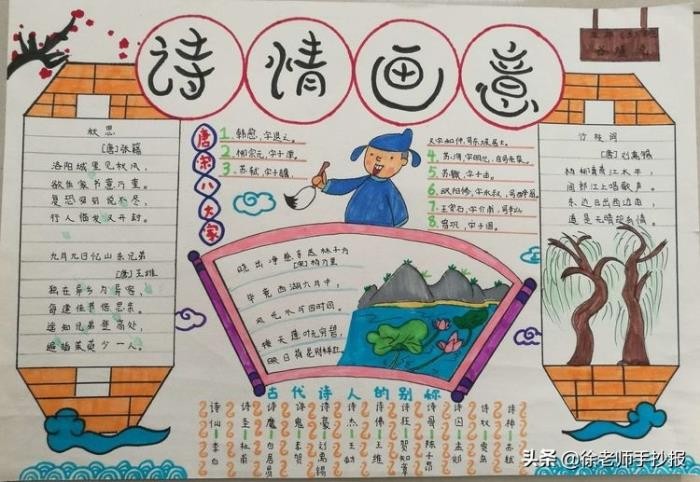 诗情画意
秋思
[唐]张籍
洛阳城里见秋风,
欲作家书意万重。
复恐匆匆说不尽,
行人临发又开封。
九月九日忆山东兄弟
[唐]王维
独在异乡为异客,
每逢佳节倍思亲。
遥知兄弟登高处,
遍插茱萸少一人。
唐宋八大家
1.韩愈,字退之。
2.柳宗元,字子厚。
3.苏轼,字子瞻,
又字和仲,号东坡居士。
4.苏洵,字明允,自号老泉。
5.苏辙,字子由。
6.欧阳修,字永叔,号醉翁。
7.王安石,字介甫,号半山
8.曾巩,字子固。
晓出净慈寺送林子方
[宋]杨万里
毕竟西湖六月中,
风光不与四时同。
接天莲叶无穷碧,
映日荷花别样红。
竹枝词
[唐]刘禹锡
杨柳青青江水平,
闻郎江上唱歌声。
东边日出西边雨,
道是无晴却有晴。
古代诗人的别称
诗仙—李白
诗圣—杜甫
诗魔—白居易
诗鬼—李贺
诗豪—刘禹锡
诗杰—王勃
诗佛—王维
诗狂—贺知章
诗骨—陈子昂
诗囚—孟郊
诗奴—贾岛
诗神—苏轼
头条 @徐老师手抄报